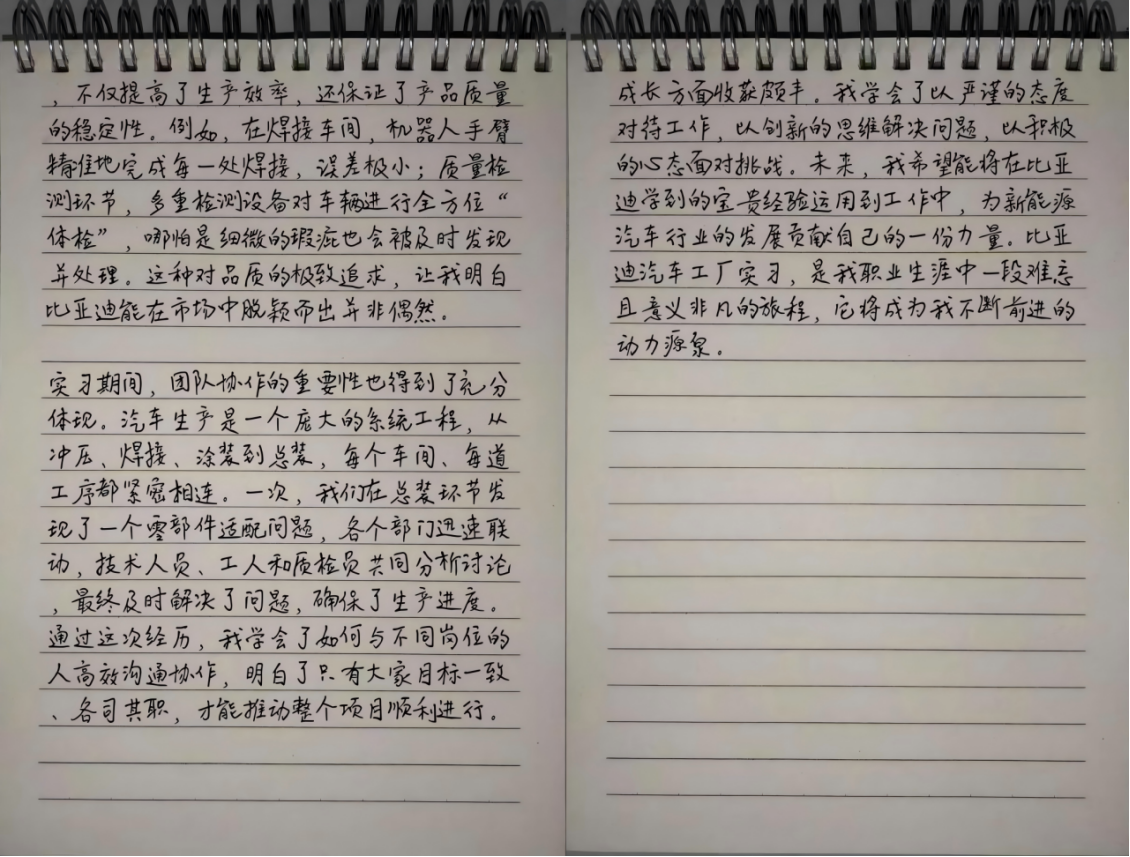 ，不仅提高了生产效率，还保证了产品质量
的稳定性。例如，在焊接车间，机器人手臂
精准地完成每一处焊接，误差极小；质量检
测环节，多重检测设备对车辆进行全方位“
体检”，哪怕是细微的瑕疵也会被及时发现
并处理。这种对品质的极致追求，让我明白
比亚迪能在市场中脱颖而出并非偶然。
实习期间，团队协作的重要性也得到了充分
体现。汽车生产是一个庞大的系统工程，从
冲压、焊接、涂装到总装，每个车间、每道
工序都紧密相连。一次，我们在总装环节发
现了一个零部件适配问题，各个部门迅速联
动，技术人员、工人和质检员共同分析讨论
，最终及时解决了问题，确保了生产进度。
通过这次经历，我学会了如何与不同岗位的
人高效沟通协作，明白了只有大家目标一致
、各司其职，才能推动整个项目顺利进行。
成长方面收获颇丰。我学会了以严谨的态度
对待工作，以创新的思维解决问题，以积极
的心态面对挑战。未来，我希望能将在比亚
迪学到的宝贵经验运用到工作中，为新能源
汽车行业的发展贡献自己的一份力量。比亚
迪汽车工厂实习，是我职业生涯中一段难忘
且意义非凡的旅程，它将成为我不断前进的
动力源泉。